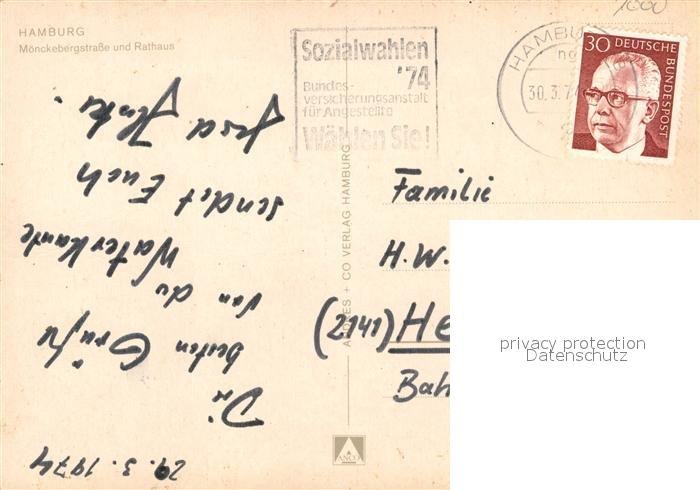 HAMBURG
Mönckebergstraße und Rathaus
Sozialwahlen
'74
Bundes-
versicherungsanstalt
für Angestellte
Wählen Sie!
HAMBURG
30.3.74
30 DEUTSCHE BUNDESPOST
29.3.1974
Die
besten Grüße
von der
Waterkante
sendet Euch
Familie
H.W.
(2141) He
Bah
+ CO VERLAG HAMBURG
ANCO
privacy protection
Datenschutz